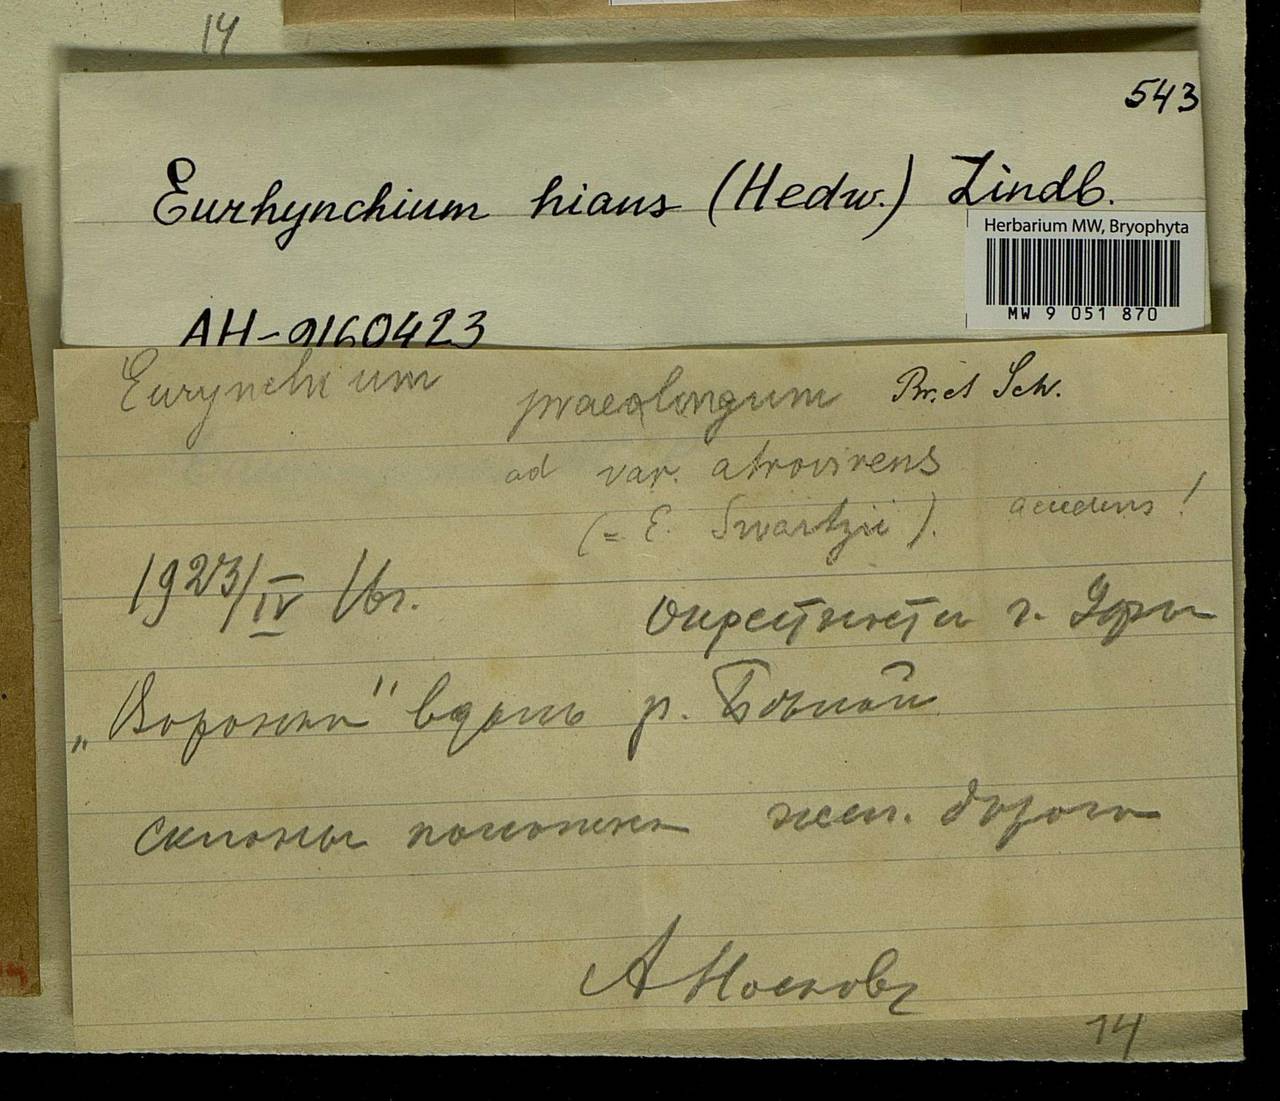 14
543
Eurhynchium hians (Hedw.) Lindb.
Herbarium MW, Bryophyta
MW 9 051 870
AH-9160423
Eurynchium praelongum Br. et Sch.
ad var. atrovirens
(= E. Swartzii). accedens!
1923/IV 16 г. Окрестности г. Уфы
„Воронки" вдоль р. Белой
склоны полотна жел. дороги
А Носков
14